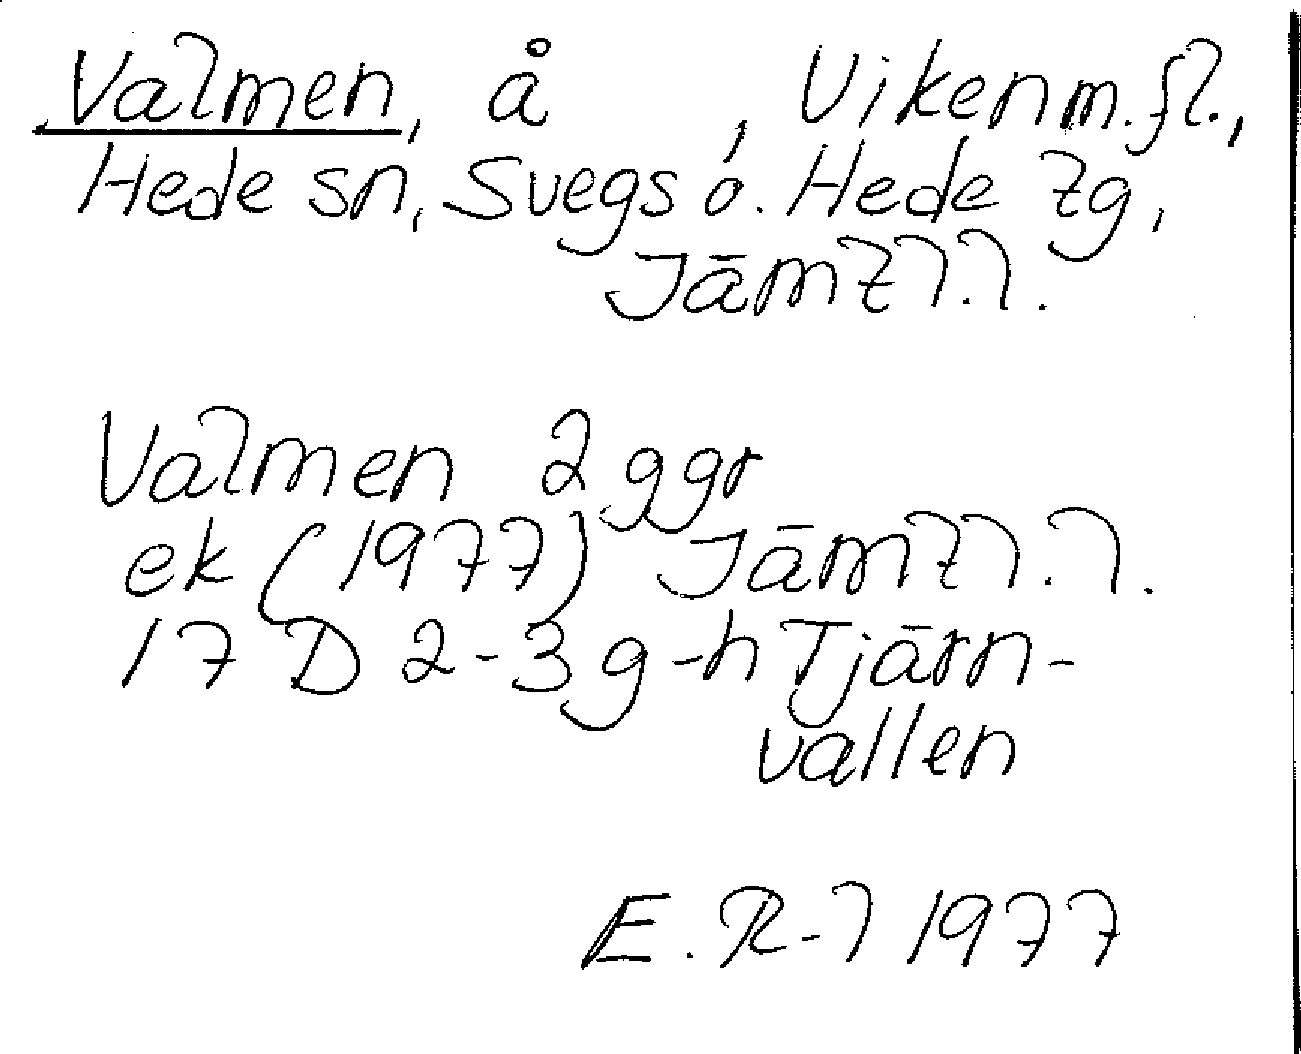 Valmen, å , Viken m.fl.,
Hede sn, Svegs o. Hede tg,
Jämtl.l.
Valmen 2 ggr
ek (1977) Jämtl.l.
17 D 2-3 g-h Tjärn-
vallen
E.R-l 1977